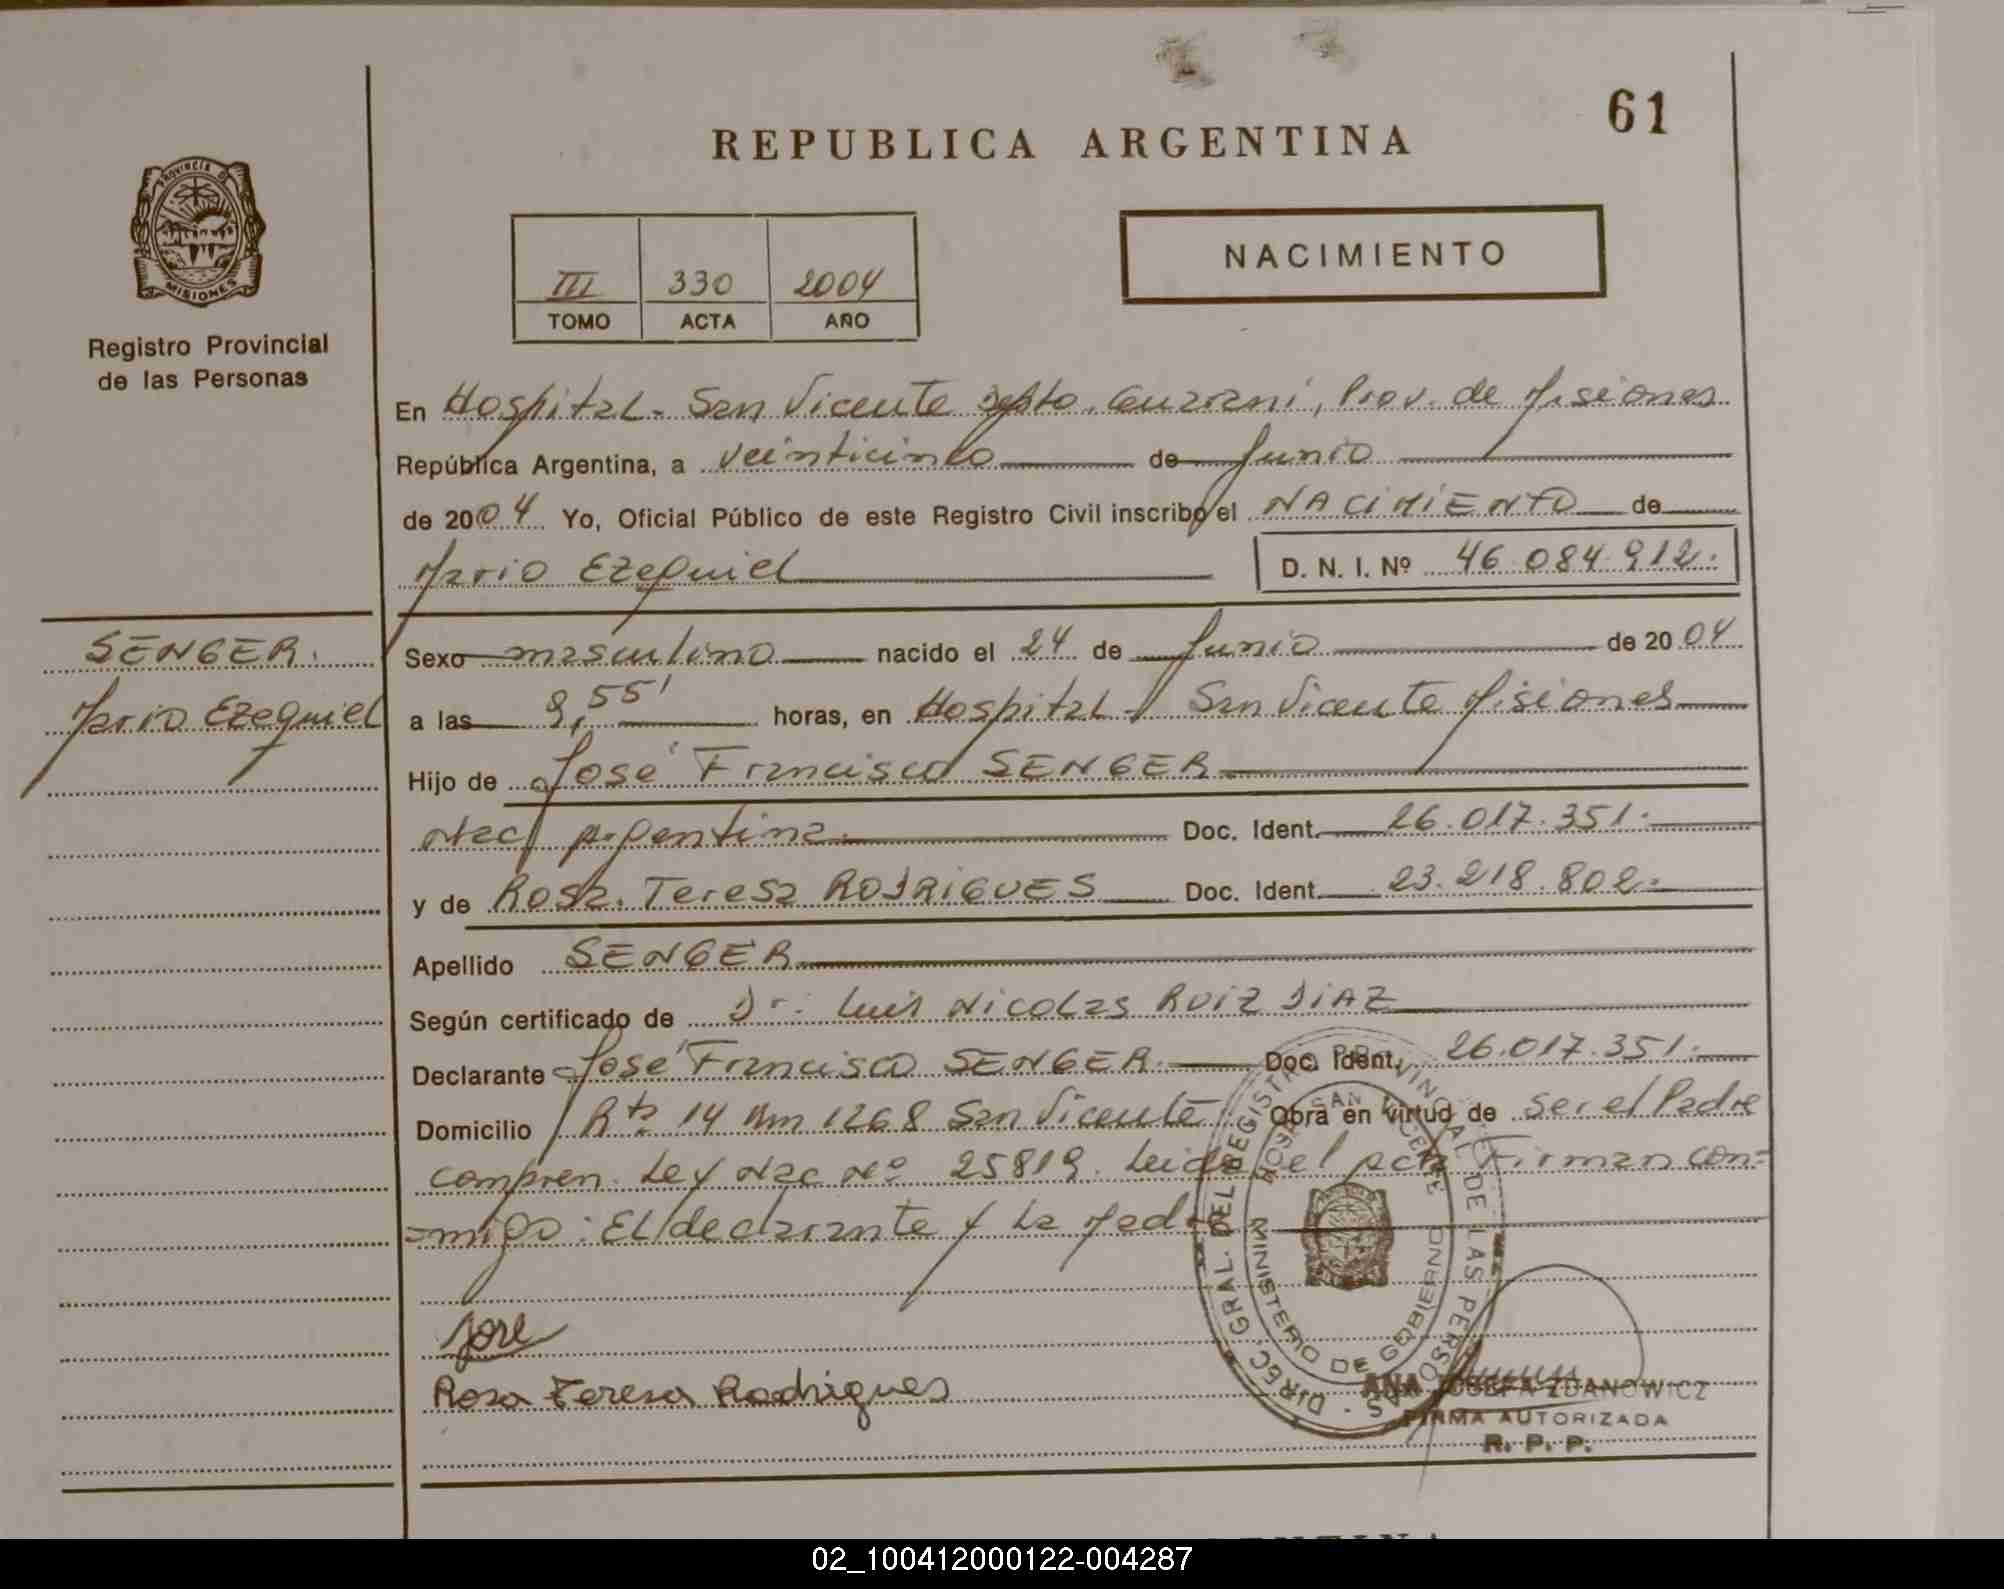 61
REPUBLICA ARGENTINA
PROVINCIA DE
MISIONES
Registro Provincial
de las Personas
NACIMIENTO
III 330 2004
TOMO ACTA AÑO
En Hospital - San Vicente Depto. Guarani, Prov. de Misiones
República Argentina, a veinticinco de Junio
de 2004 Yo, Oficial Público de este Registro Civil inscribo el NACIMIENTO de
Mario Ezequiel D. N. I. Nº 46.084.912.
SENGER.
Mario Ezequiel
Sexo masculino nacido el 24 de Junio de 2004
a las 8,55' horas, en Hospital - San Vicente Misiones
Hijo de José Francisco SENGER
Nac. Argentina. Doc. Ident. 26.017.351.
y de Rosa. Teresa RODRIGUES Doc. Ident. 23.218.802.
Apellido SENGER
Según certificado de Dr. Luis Nicolas RUIZ DIAZ
Declarante José Francisco SENGER. Doc. Ident. 26.017.351.
Domicilio Rta 14 Km 1268 San Vicente Obra en virtud de ser el Padre
compren. Ley Nac Nº 25819. Leida el acta Firman con=
=migo: El declarante y La Madre
Jose
Rosa Teresa Rodrigues
DIREC. GRAL. DEL REGISTRO PROVINCIAL DE LAS PERSONAS
SAN VICENTE
MINISTERIO DE GOBIERNO
ANA JOSEFA ZDANOWICZ
FIRMA AUTORIZADA
R. P. P.
02_100412000122-004287